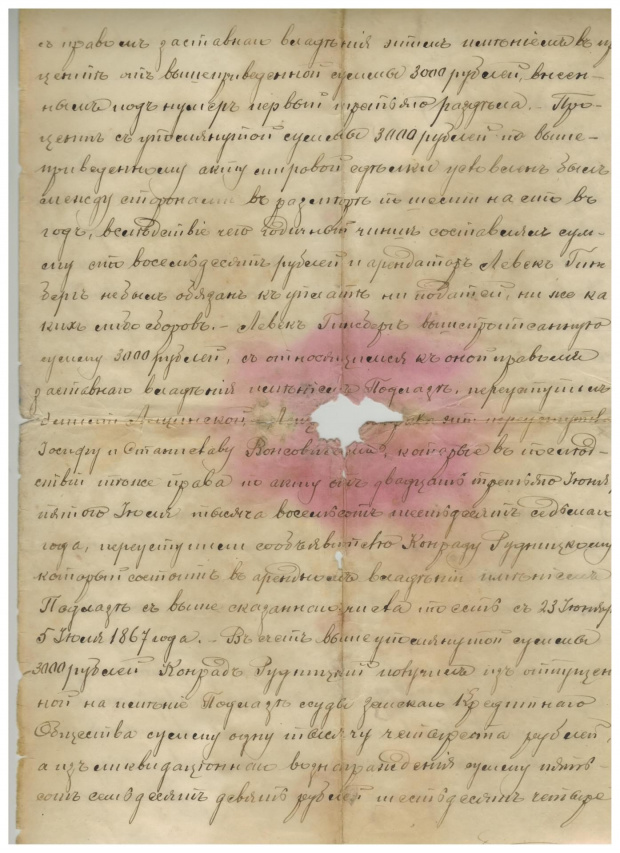 съ правомъ заставнаго владѣнія этимъ имѣніемъ въ
центѣ отъ вышеприведенной суммы 3000 рублей, внесен-
нымъ подъ нумеръ первый третьяго раздѣла. - Про-
центъ съ упомянутой суммы 3000 рублей по выше-
приведенному акту мировой сдѣлки условленъ былъ
между сторонами въ размѣрѣ по шести на сто въ
годъ, вслѣдствіе чего годичный чиншъ составлялъ сум-
му сто восемьдесятъ рублей и арендаторъ Левекъ Гинз
бергъ не былъ обязанъ къ уплатѣ ни податей, ни же ка
кихъ либо сборовъ. - Левекъ Гинсбергъ вышепрописанную
сумму 3000 рублей, съ относящимися къ оной правами
заставнаго владѣнія имѣніемъ Подлазъ, переуступилъ
Іосифу и Станиславу, которые въ послѣд-
ствіи тоже права по акту отъ двадцать третьяго Іюня
пятого Іюля тысяча восемьсотъ шестьдесятъ седьмаго
года, переуступили сообъявителю Конраду Рудницкому
который состоитъ въ арендномъ владѣніи имѣніемъ
Подлазъ съ выше сказаннаго числа то есть съ 23 Іюня
5 Іюля 1867 года. - Въ счетъ вышеупомянутой суммы
3000 рублей Конрадъ Рудницкій получилъ изъ отпущен
ной на имѣніе Подлазъ ссуды Земскаго Кредитнаго
Общества сумму одну тысячу четыреста рублей,
а изъ ликвидаціоннаго вознагражденія сумму пять-
сотъ семьдесятъ девять рублей шестьдесятъ четыре